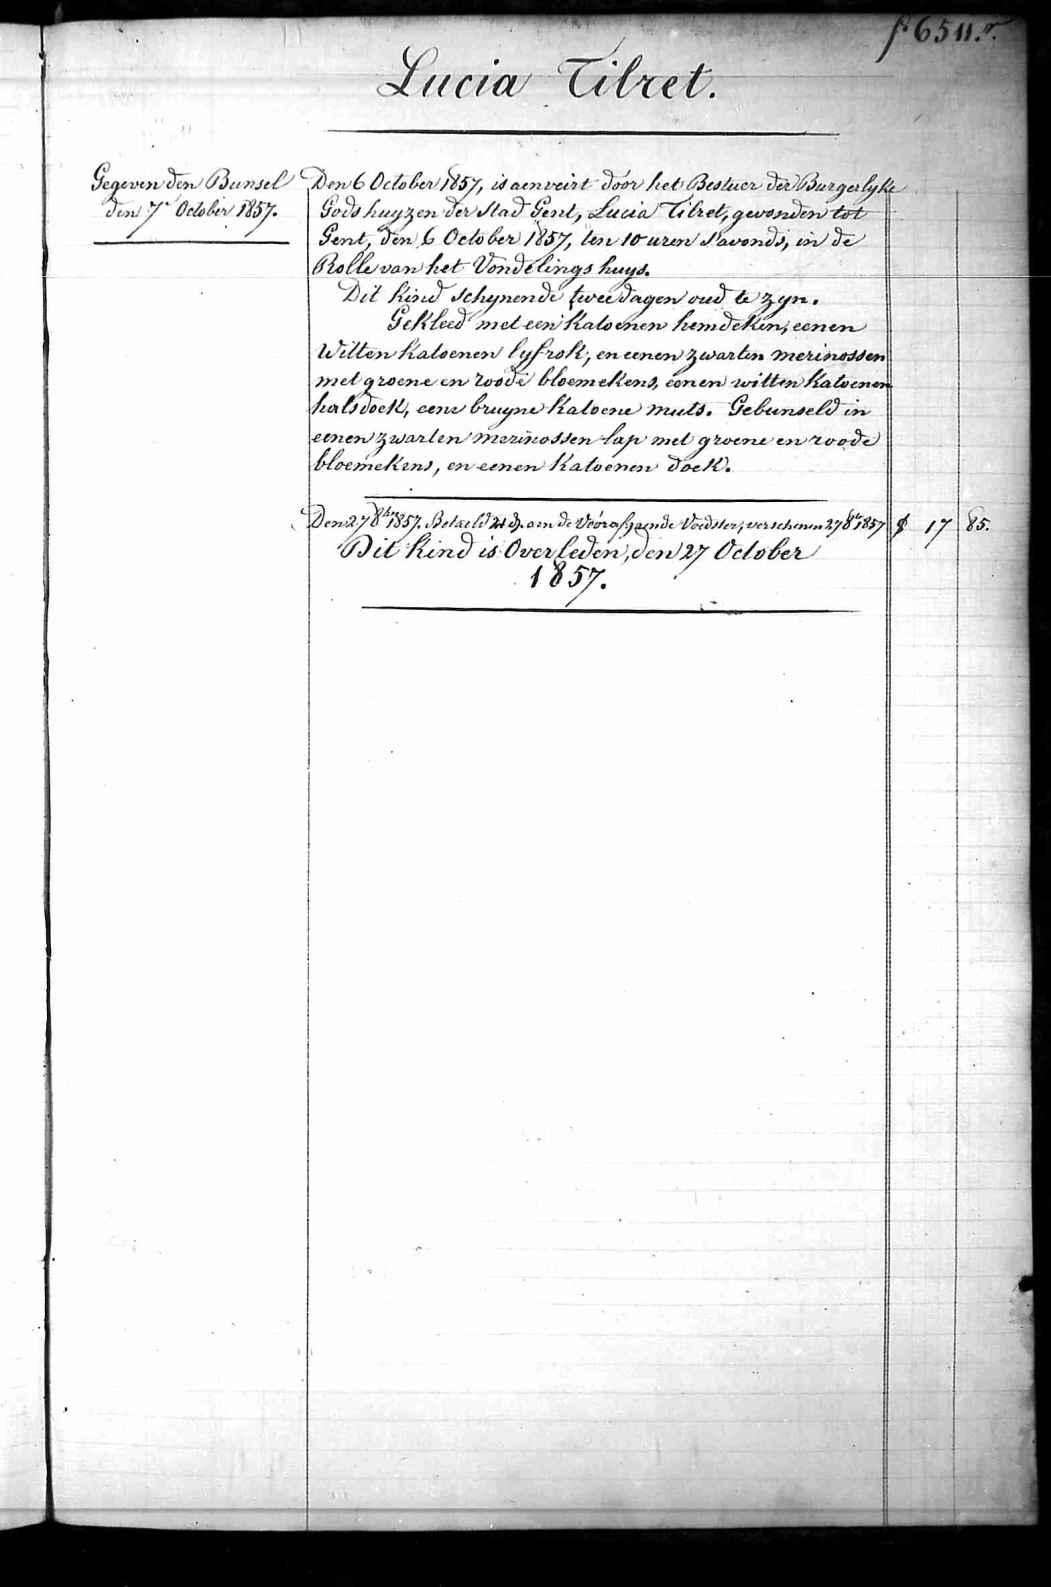 f° 6511.r.
Lucia Tilret.
Gegeven den Bunsel
den 7n October 1857.
Den 6 October 1857, is aenveirt door het Bestuer der Burgerlyke
Godshuyzen der Stad Gent, Lucia Tilret, gevonden tot
Gent, den 6 October 1857, ten 10 uren s'avonds, in de
Rolle van het Vondelingshuys.
Dit Kind schynende twee dagen oud te zyn.
Gekleed met een Katoenen hemdeken, eenen
Witten Katoenen lyfrok, en eenen zwarten merinossen
met groene en roode bloemekens, eenen witten Katoenen
halsdoek, eene bruyne Katoene muts. Gebunseld in
eenen zwarten merinossen lap met groene en roode
bloemekens, en eenen Katoenen doek.
Den 27 8ber 1857. Betaeld 21 d. aen de Voorafgaende Voedster, verschenen 27 8br 1857 17 85.
Dit Kind is Overleden, den 27 October
1857.